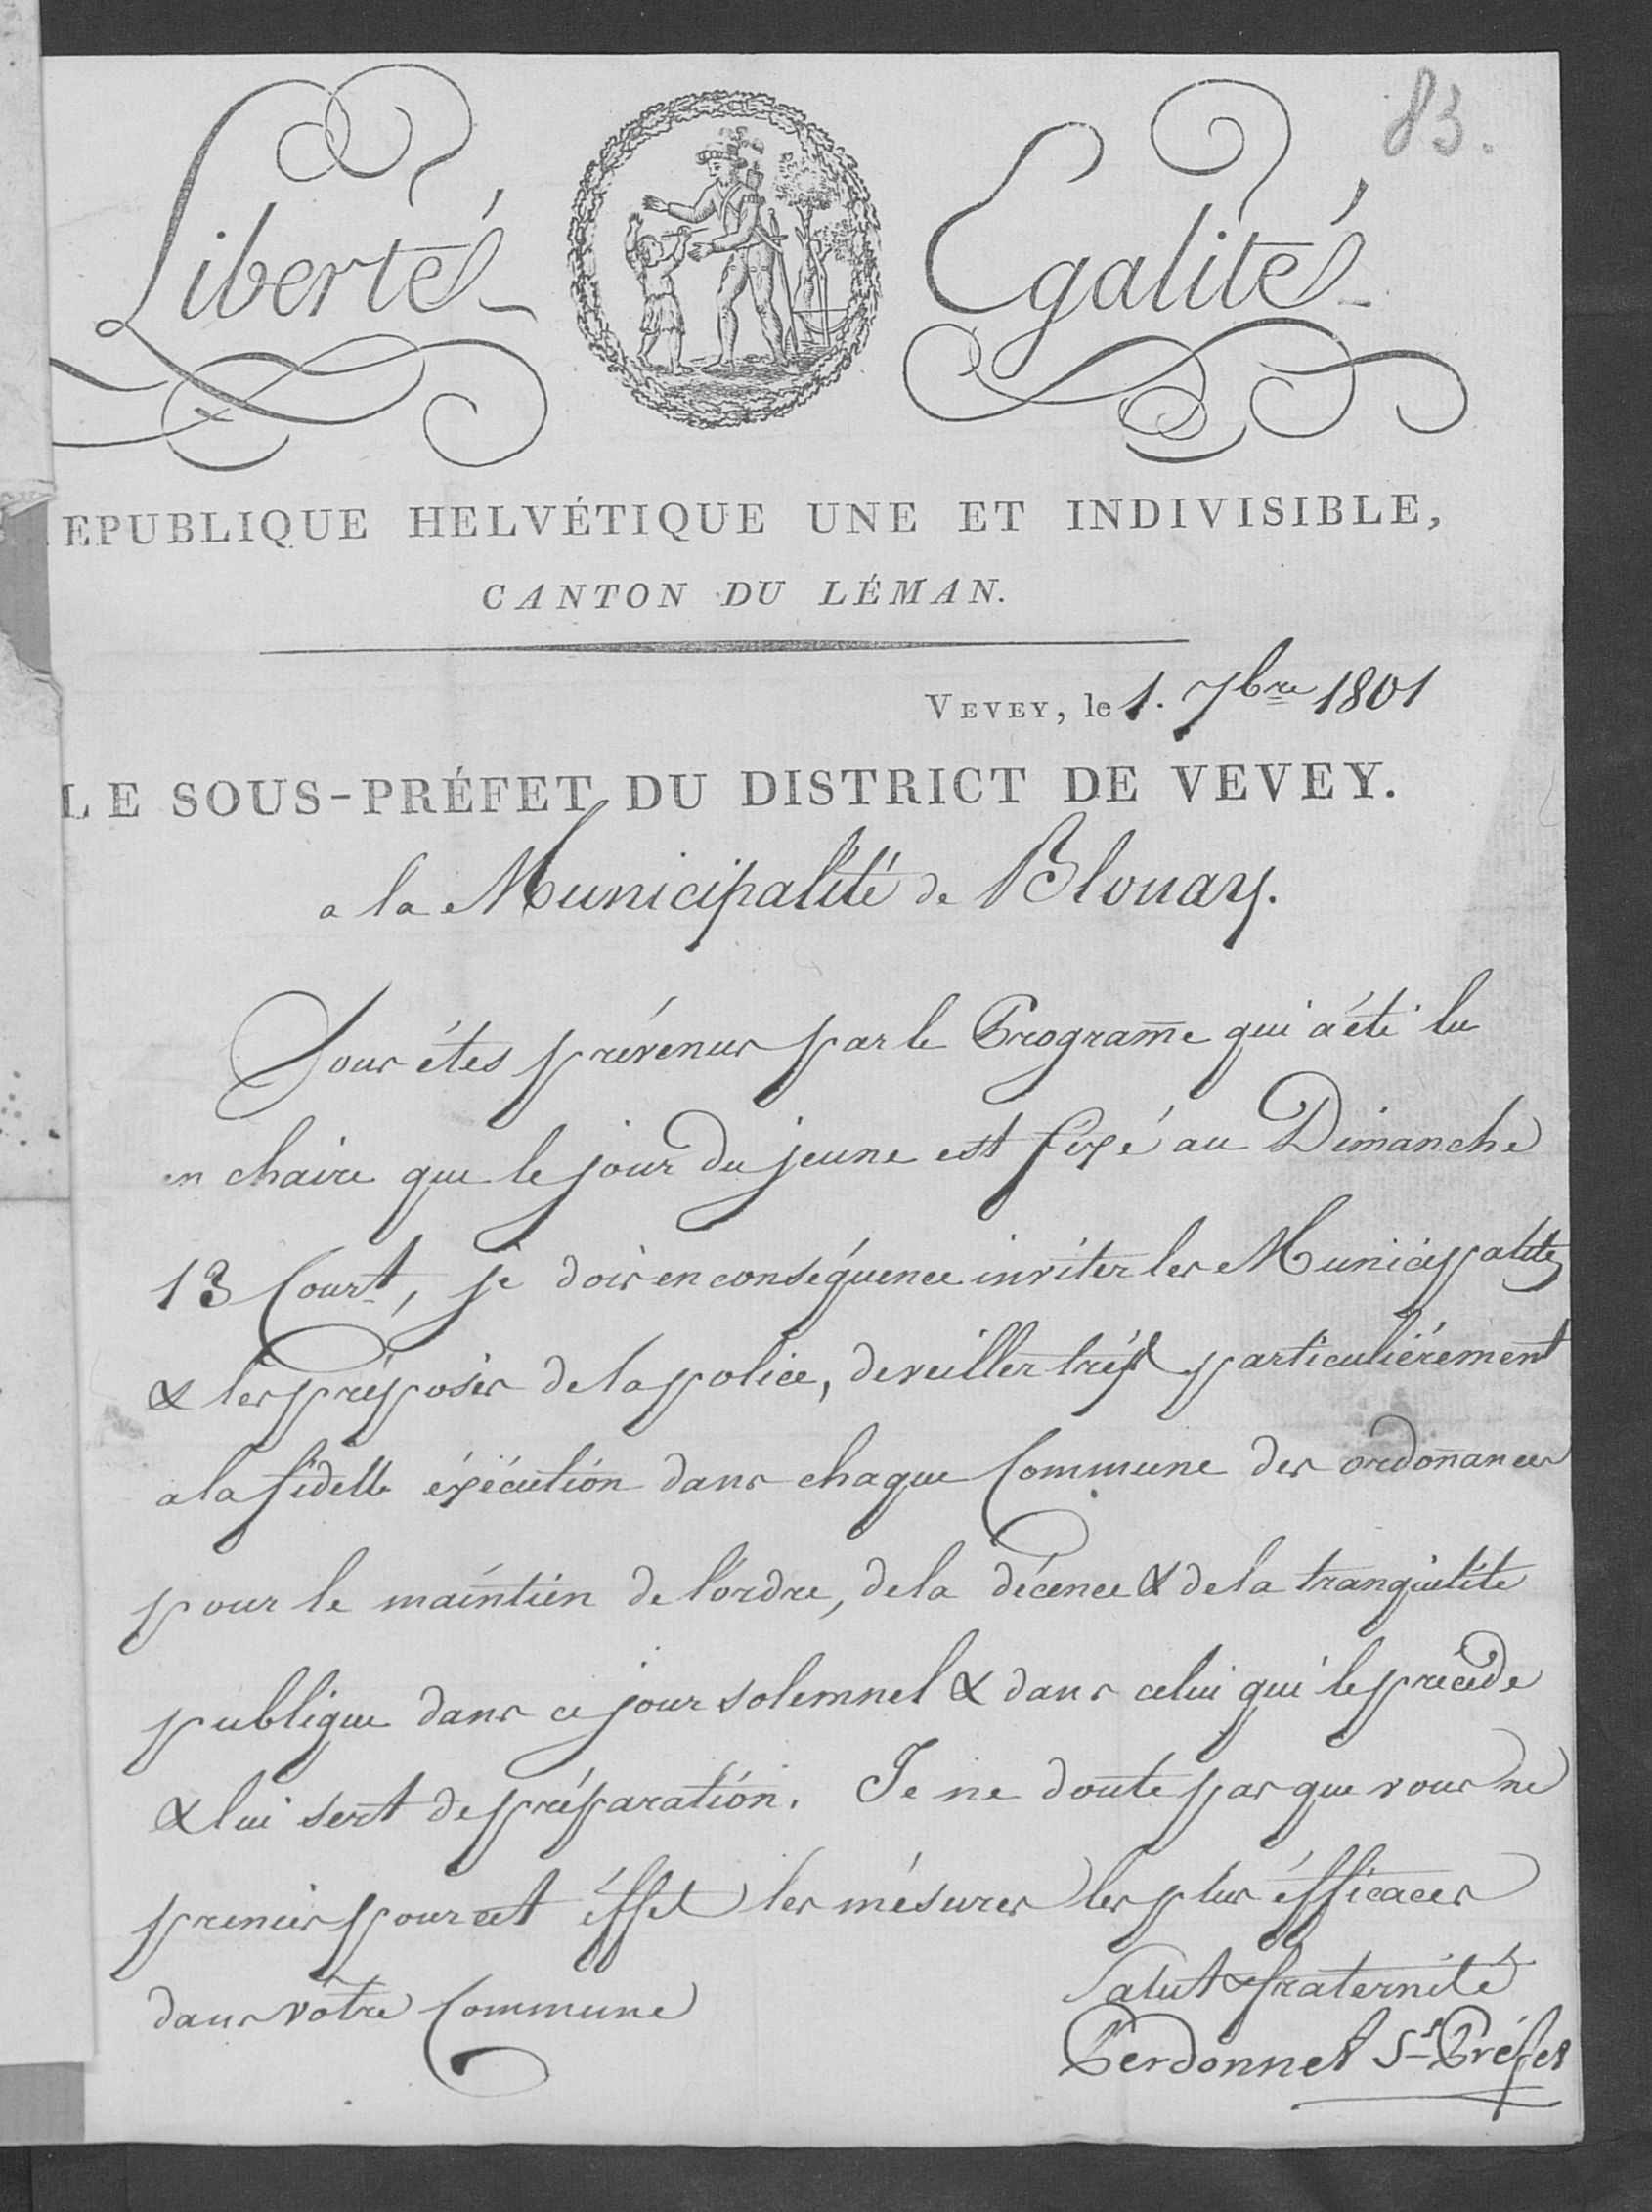 83.
Liberté Egalité
EPUBLIQUE HELVÉTIQUE UNE ET INDIVISIBLE,
CANTON DU LÉMAN.
VEVEY, le 1. 7bre 1801
LE SOUS-PRÉFET DU DISTRICT DE VEVEY.
a la Municipalité de Blonay.
Vous étes prévenus par le Program̅e qui a été lu
en chaire que le jour du jeune est fixé au Dimanche
13 Court, je dois en conséquence inviter les Municipalités
& les préposés de la police, de veiller trés particuliérement
a la fidelle éxécution dans chaque Commune des ordon̅ances
pour le maintien de l'ordre, de la décence & de la tranquilité
publique dans ce jour solemnel & dans celui qui le précède
& lui sert de préparation. Je ne doute pas que vous ne
preniés pour cet éffet les mésures les plus éfficaces
dans vôtre Commune
Salut & fraternité
Perdonnet St Préfet